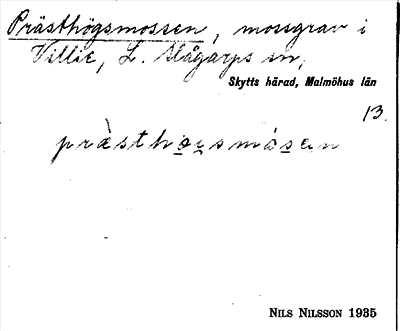 Prästhögsmossen, mossgrav i
Villie, L. Slågarps sn,
Skytts härad, Malmöhus län
13.
NILS NILSSON 1935